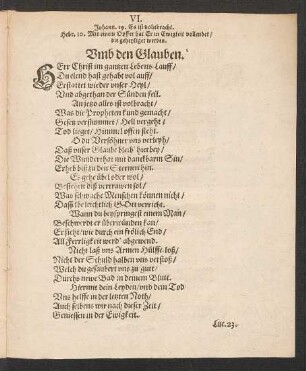 VI.
Johann. 19. Es ist vollnbracht.
Hebr. 10. Mit einem Opffer hat Er in Ewigkeit vollendet/
die geheyliget werden.
Vmb den Glauben.
HErr Christ im gantzen Lebens-Lauff/
Du elend hast gehabt vol auff/
Erstattet wieder vnser Heyl/
Vnd abgethan der Sünden feil.
Anjetzo alles ist volbracht/
Was die Propheten kund gemacht/
Gesetz verstummet/ Hell vergeht/
Tod lieget/ Himmel offen steht.
O du Versöhner vns verleyh/
Daß vnser Glaube bleib' herbey/
Die Wunderthat mit danckbarm Sin/
Erheb biß zu den Sternen hin.
Es gehe übel oder wol/
Bestehen diß vertrawen sol/
Was schwache Menschen können nicht/
Daß selbe leichtlich GOtt verricht.
Wann du beyspringest einem Man/
Beschwerdt er überwinden kan/
Er sieht/ wie durch ein frölich End/
All Herrligkeit werd' abgewend.
Nicht laß vns Armen Hülffe-loß/
Nicht der Schuld halben vns verstoß/
Welch du gesaubert vns zu gutt/
Durchs newe Bad in deinem Blut.
Hiermit dein Leyden/ vnd dein Tod
Vns helffe in der letzten Noth/
Auch sterben wir nach dieser Zeit/
Geniessen in der Ewigkeit.
Luc. 23.